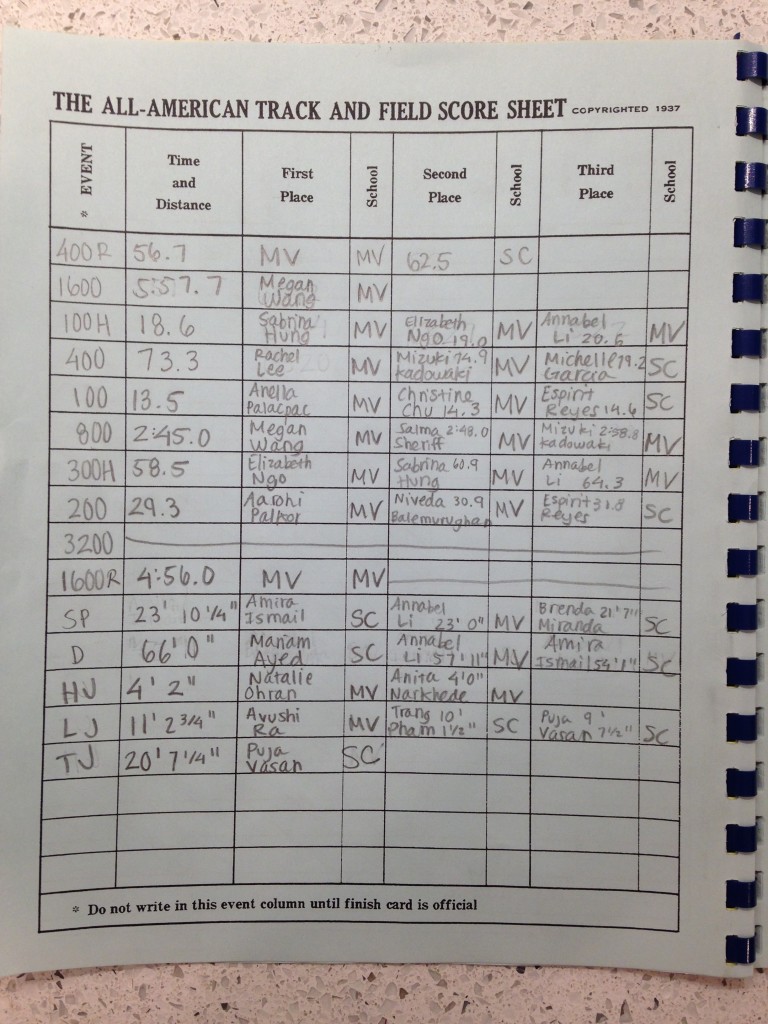 THE ALL-AMERICAN TRACK AND FIELD SCORE SHEET COPYRIGHTED 1937
* EVENT Time and Distance First Place School Second Place School Third Place School
400R 56.7 MV MV 62.5 SC
1600 5:57.7 Megan Wang MV
100H 18.6 Sabrina Hung MV Elizabeth Ngo 19.0 MV Annabel Li 20.6 MV
400 73.3 Rachel Lee MV Mizuki 74.9 Kadowaki MV Michelle 79.2 Garcia SC
100 13.5 Anella Palacpac MV Christine Chu 14.3 MV Espirit Reyes 14.6 SC
800 2:45.0 Megan Wang MV Salma 2:48.0 Sheriff MV Mizuki 2:58.8 Kadowaki MV
300H 58.5 Elizabeth Ngo MV Sabrina 60.9 Hung MV Annabel Li 64.3 MV
200 29.3 Aarohi MV Niveda 30.9 Balemurughan MV Espirit 31.8 Reyes SC
3200
1600R 4:56.0 MV MV
SP 23' 10 1/4" Amira Ismail SC Annabel Li 23' 0" MV Brenda 21' 7" Miranda SC
D 66' 0" Mariam Ayed SC Annabel Li 57' 11" MV Amira Ismail 54' 1" SC
HJ 4' 2" Natalie Ohran MV Anita 4'0" Narkhede MV
LJ 11' 2 3/4" Ayushi Ra MV Trang 10' Pham 1 1/2" SC Puja 9' Vasan 7 1/2" SC
TJ 20' 7 1/4" Puja Vasan SC
* Do not write in this event column until finish card is official